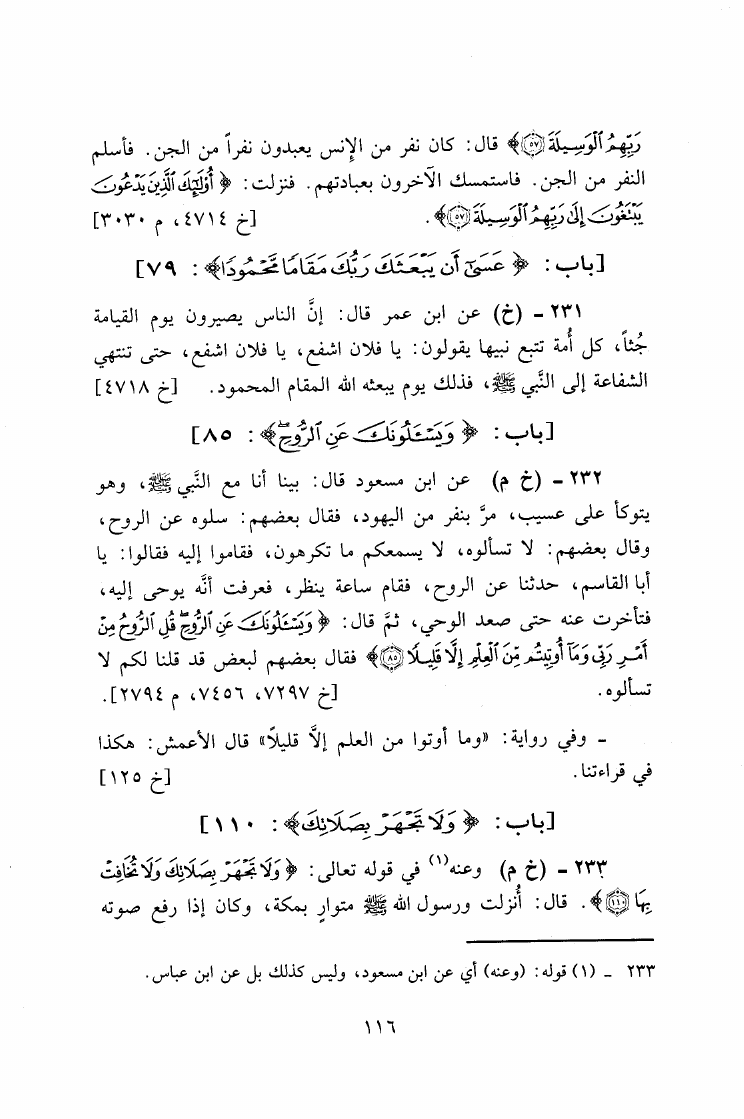 رَبِّهِمُ ٱلْوَسِيلَةَ ﴿٥٧﴾﴾ قال: كان نفر من الإنس يعبدون نفراً من الجن. فأسلم
النفر من الجن. فاستمسك الآخرون بعبادتهم. فنزلت: ﴿أُوْلَٰٓئِكَ ٱلَّذِينَ يَدْعُونَ
يَبْتَغُونَ إِلَىٰ رَبِّهِمُ ٱلْوَسِيلَةَ ﴿٥٧﴾﴾. [خ ٤٧١٤، م ٣٠٣٠]
[باب: ﴿عَسَىٰٓ أَن يَبْعَثَكَ رَبُّكَ مَقَامًا مَّحْمُودًا﴾: ٧٩]
٢٣١ - (خ) عن ابن عمر قال: إنَّ الناس يصيرون يوم القيامة
جُثاً، كل أُمة تتبع نبيها يقولون: يا فلان اشفع، يا فلان اشفع، حتى تنتهي
الشفاعة إلى النَّبي ﷺ، فذلك يوم يبعثه الله المقام المحمود. [خ ٤٧١٨]
[باب: ﴿وَيَسْـَٔلُونَكَ عَنِ ٱلرُّوحِ﴾: ٨٥]
٢٣٢ - (خ م) عن ابن مسعود قال: بينا أنا مع النَّبي ﷺ، وهو
يتوكأ على عسيب، مرَّ بنفر من اليهود، فقال بعضهم: سلوه عن الروح،
وقال بعضهم: لا تسألوه، لا يسمعكم ما تكرهون، فقاموا إليه فقالوا: يا
أبا القاسم، حدثنا عن الروح، فقام ساعة ينظر، فعرفت أنَّه يوحى إليه،
فتأخرت عنه حتى صعد الوحي، ثمَّ قال: ﴿وَيَسْـَٔلُونَكَ عَنِ ٱلرُّوحِ ۖ قُلِ ٱلرُّوحُ مِنْ
أَمْرِ رَبِّى وَمَآ أُوتِيتُم مِّنَ ٱلْعِلْمِ إِلَّا قَلِيلًا ﴿٨٥﴾﴾ فقال بعضهم لبعض قد قلنا لكم لا
تسألوه. [خ ٧٢٩٧، ٧٤٥٦، م ٢٧٩٤].
- وفي رواية: «وما أوتوا من العلم إلاَّ قليلاً» قال الأعمش: هكذا
في قراءتنا. [خ ١٢٥]
[باب: ﴿وَلَا تَجْهَرْ بِصَلَاتِكَ﴾: ١١٠]
٢٣٣ - (خ م) وعنه(١) في قوله تعالى: ﴿وَلَا تَجْهَرْ بِصَلَاتِكَ وَلَا تُخَافِتْ
بِهَا ﴿١١٠﴾﴾. قال: أُنزلت ورسول الله ﷺ متوارٍ بمكة، وكان إذا رفع صوته
٢٣٣ - (١) قوله: (وعنه) أي عن ابن مسعود، وليس كذلك بل عن ابن عباس.
١١٦